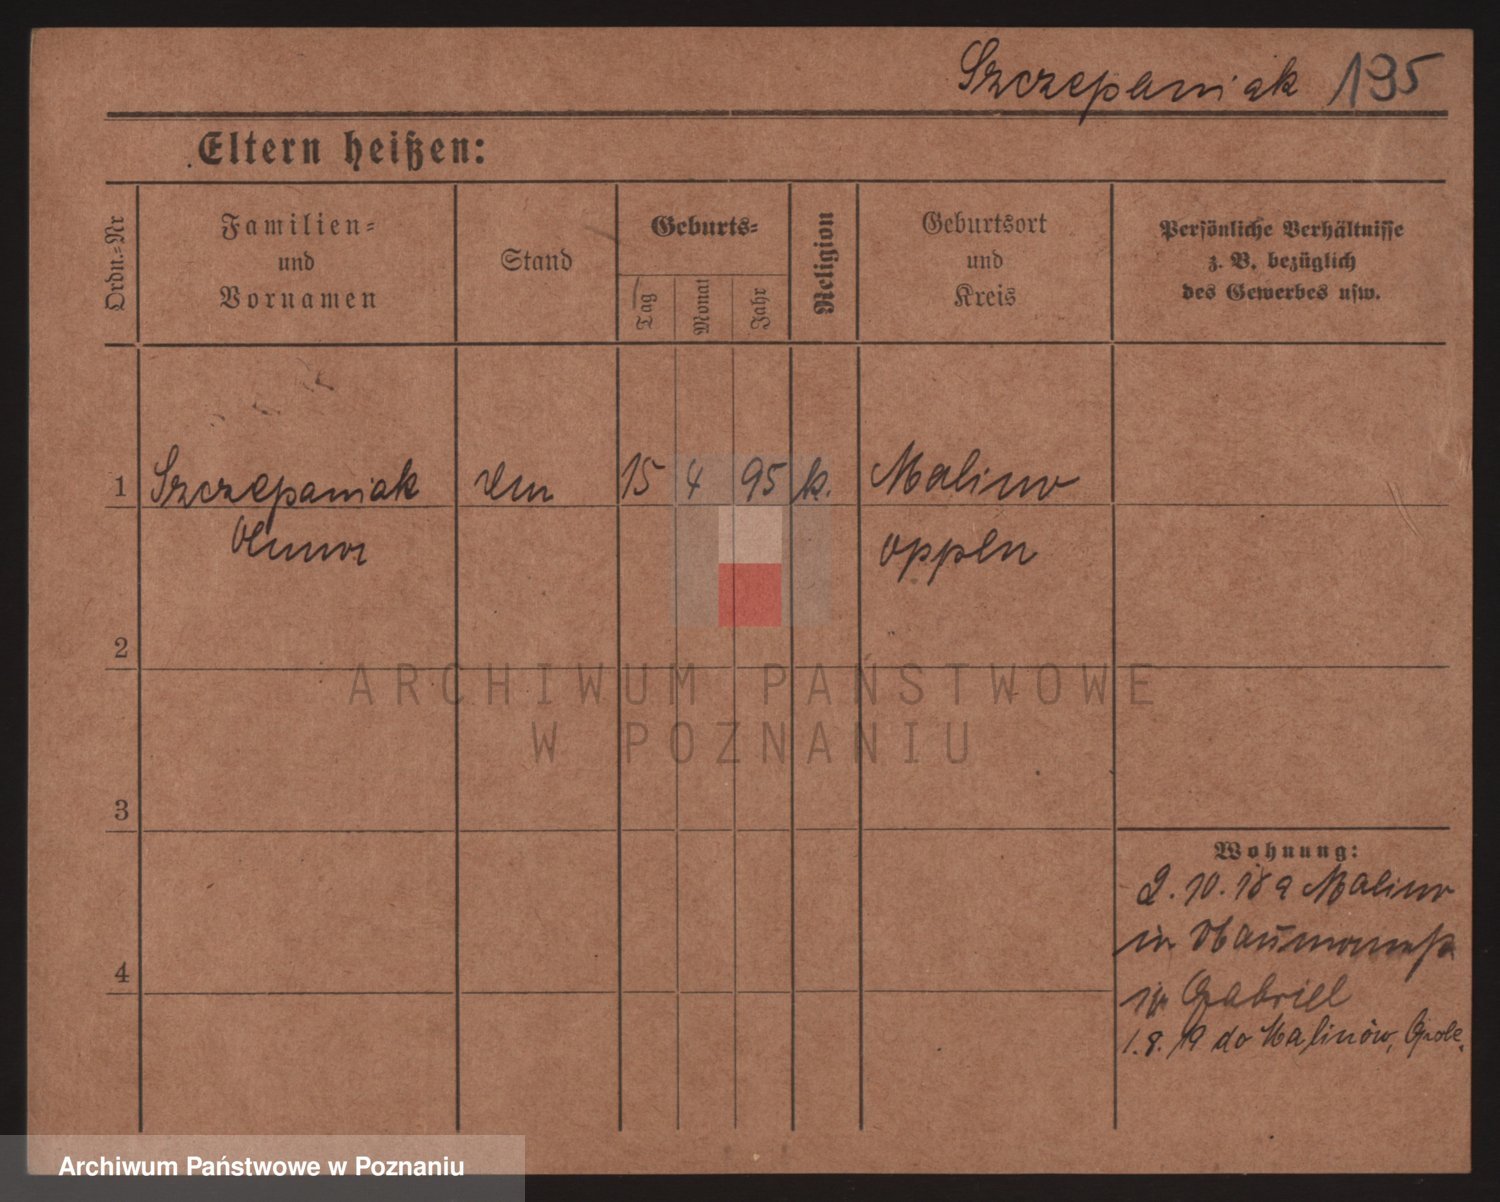 Szczepaniak 195
Eltern heißen:
Ordn.=Nr
Familien=
und
Vornamen
Stand
Geburts=
Tag
Monat
Jahr
Religion
Geburtsort
und
Kreis
Persönliche Verhältnisse
z. B. bezüglich
des Gewerbes usw.
1 Szczepaniak 15 4 95 k. Malino
Oppeln
2
3
4
Wohnung:
2. 10. 18 a Malino
in
Gabriel
1. 8. 19 do Malinów, Opole.
ARCHIWUM PAŃSTWOWE
W POZNANIU
Archiwum Państwowe w Poznaniu